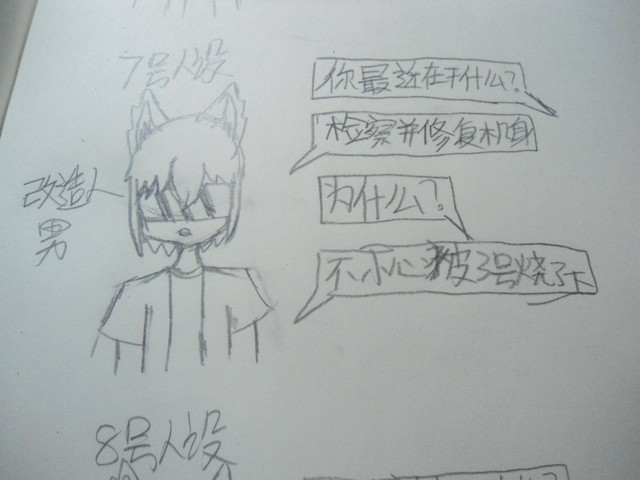 7号人设
改造人
男
你最近在干什么?
检察并修复机身
为什么?
不小心被3号烧了
8号人设